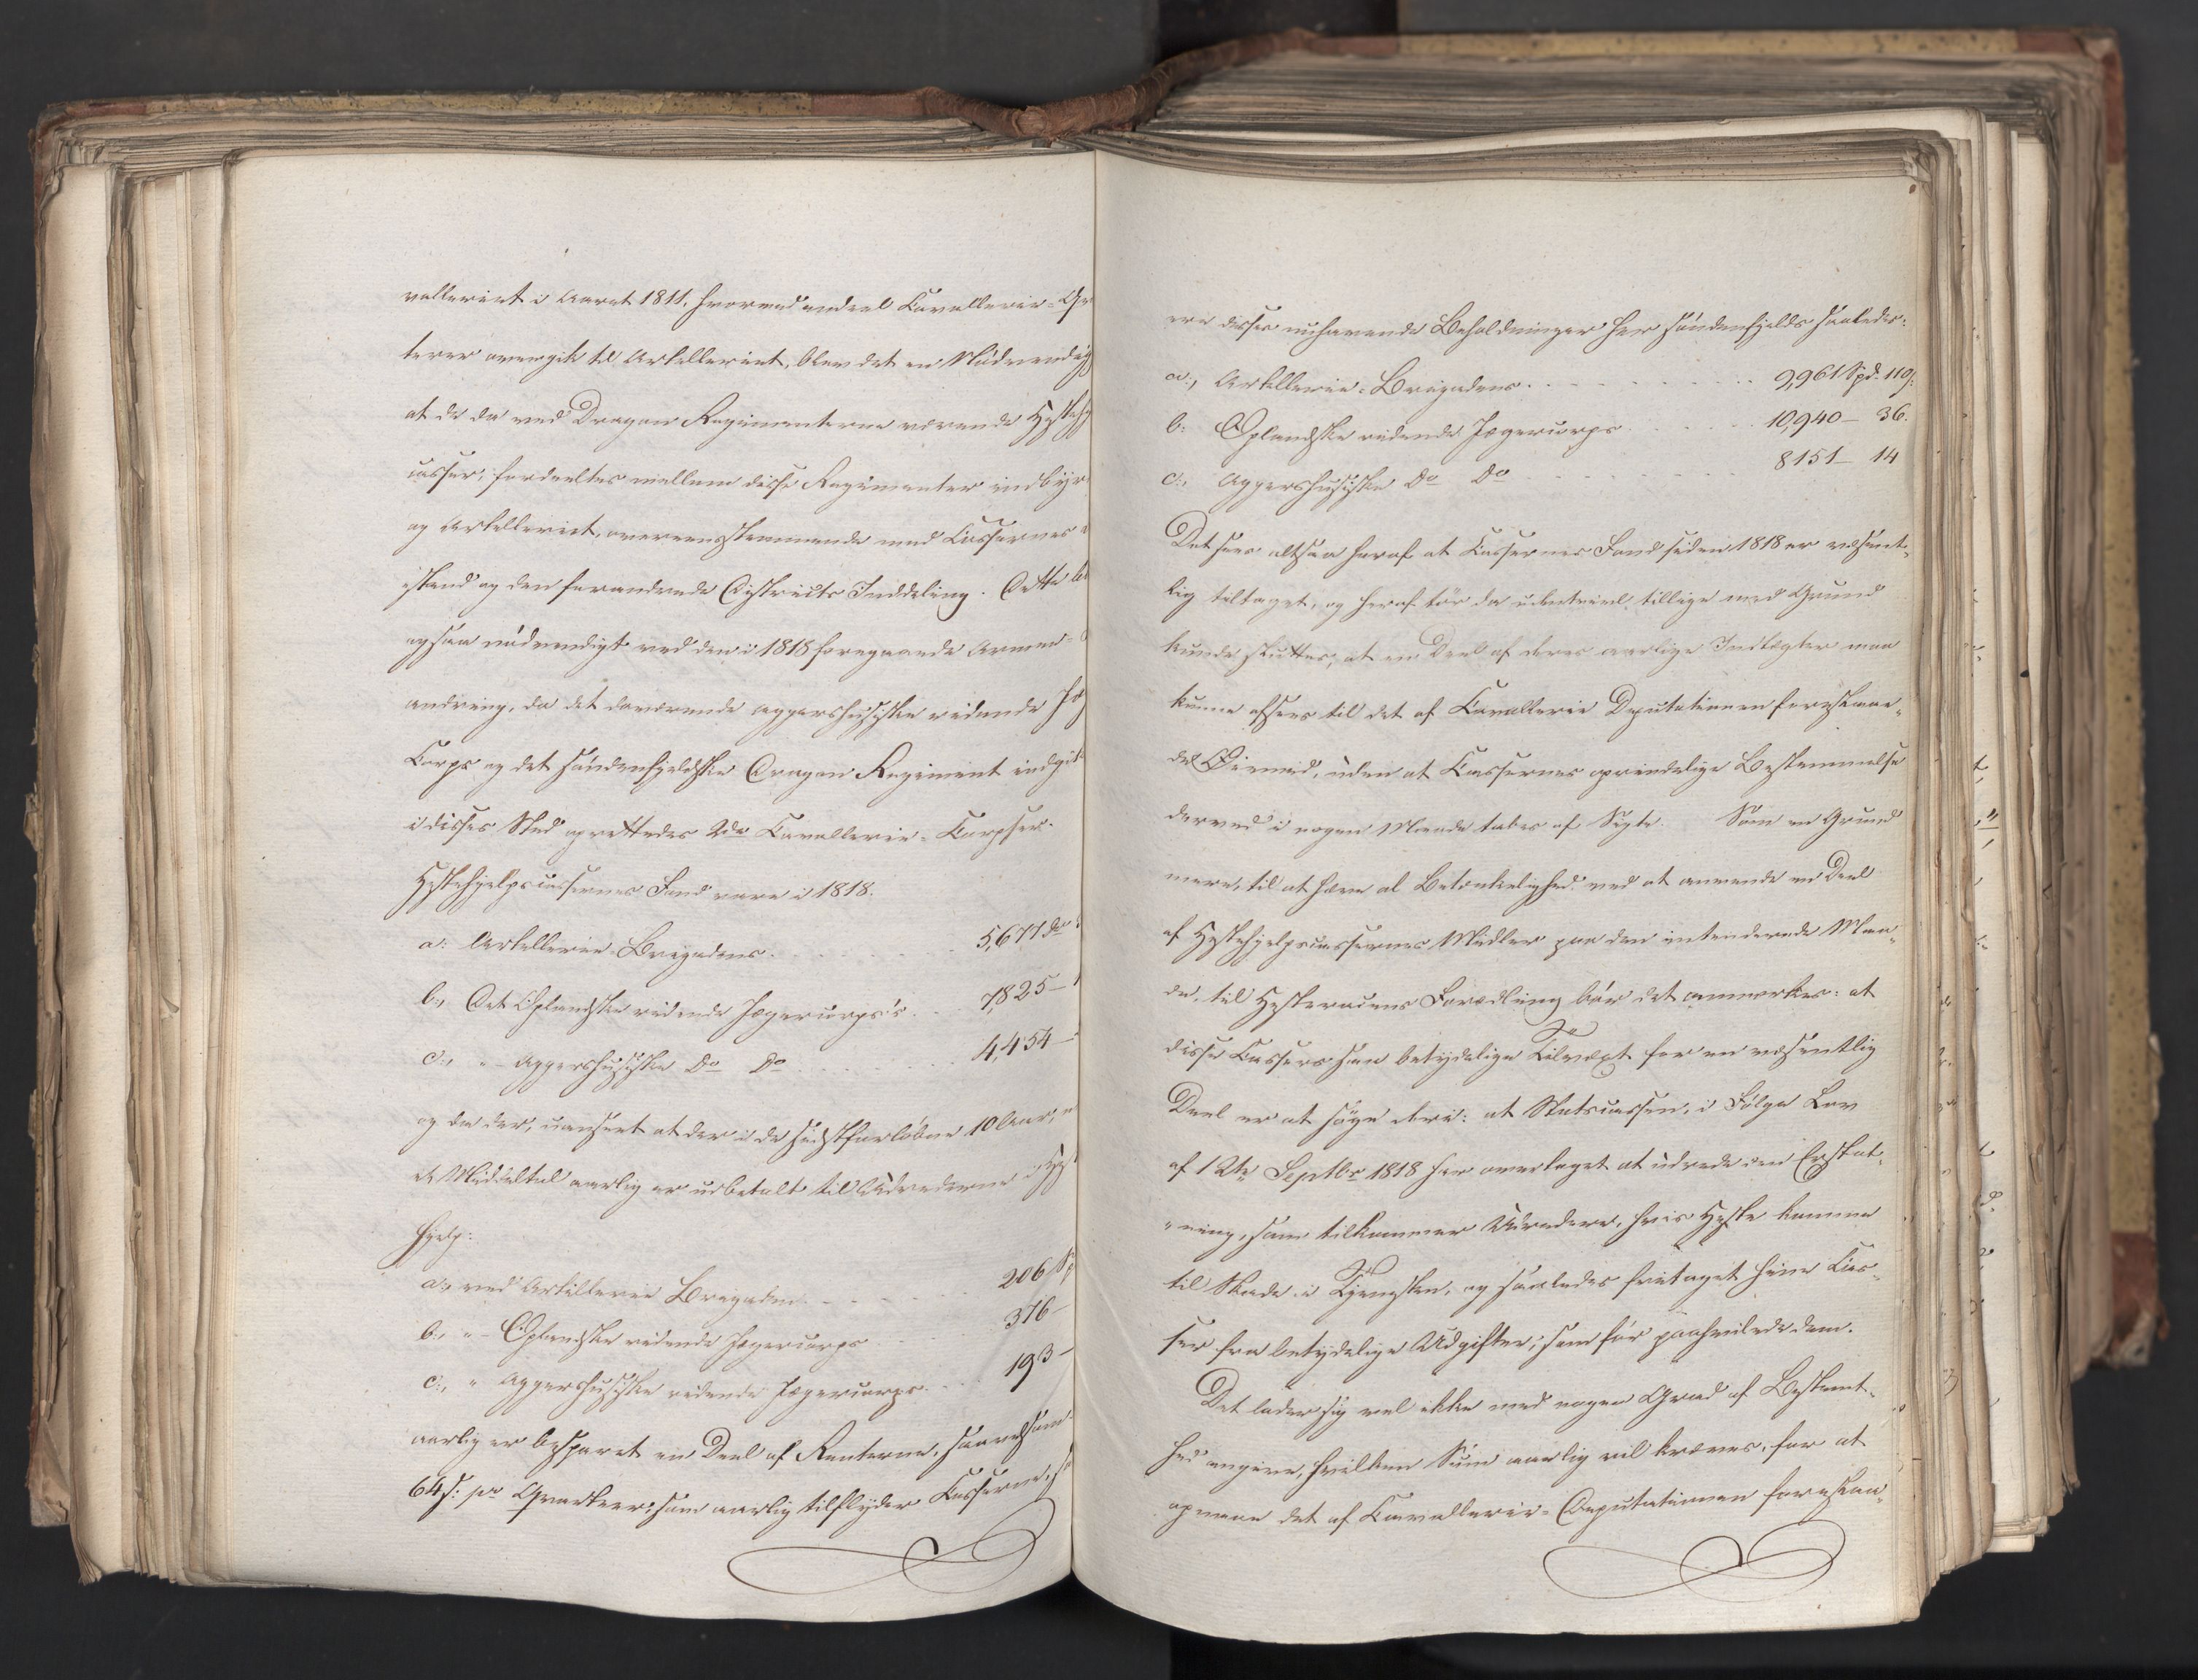 valleriet i Aaret 1811, hvorved endeel Cavallerie-Qv
terer overgik til Artilleriet, blev det en Nödvendig
at de da ved Dragon Regimenterne værende Hestehj
casser, fordeeltes mellem disse Regimenter indbyr
og Artilleriet, overeensstemmende med Cassernes
istand og den forandrede Districts Inddeling. Dette bl
ogsaa nödvendigt ved den i 1818 foregaaende Armee-
andring, da det daværende Aggershusiske ridende Jæg
Corps og det söndenfjeldske Dragon Regiment indgik
i disses Sted oprettedes 2de Cavallerie-Corpser.
Hestehjelpscassernes Fond vare i 1818.
a: Artillerie-Brigadens . . . 5,677 do
b:, Det Oplandske ridende Jægercorps's . . . 7,825 —
c:, " - Aggershusiske Do Do . . . 4,454 —
og da der, uanseet at der i de sidstforløbne 10 Aar,
et Middeltal aarlig er udbetalt til Udrederne i Hest
hjelp:
a:, ved Artillerie Brigaden . . . 206 Sp
b:, " - Oplandske ridende Jægercorps . . . 376 —
c:, " Aggershusiske ridende Jægercorps . . . 193 —
aarlig er besparet en Deel af Renterne, saavelsom
64 s: pr Qvarteer, som aarlig tilflyder Casserne, s
ere disses nuhavende Beholdninger her söndenfjelds saaledes:
a:, Artillerie-Brigadens . . . 9,961 Spd. 119 s:
b: Oplandske ridende Jægercorps . . . 10,940 — 36.
c:, Aggershusiske Do Do . . . 8151 — 14
Det sees altsaa heraf at Cassernes Fond siden 1818 er væsent-
lig tiltaget, og heraf tör da udentvivl tillige med Grund
kunde sluttes, at en Deel af deres aarlige Indtægter maa
kunne afsees til det af Cavallerie Deputationen foreslaae-
de Öiemed, uden at Cassernes oprindelige Bestemmelse
derved i nogen Maade tabes af Sigte. Som en Grund
mere, til at hæve al Betænkelighed ved at anvende en Deel
af Hestehjelpscassernes Midler paa den intenderede Maa-
de, til Hesteracens Forædling bör det anmærkes: at
disse Cassers saa betydelige Tilvæxt for en væsentlig
Deel er at söge deri: at Statscassen, i Fölge Lov
af 12te Septbr 1818 har overtaget at udrede den Erstat-
"ning, som tilkommer Udredere, hvis Heste komme
til Skade i Tjenesten, og saaledes fritaget hine Cas-
ser fra betydelige Udgifter, som för paahvilede dem.
Det lader sig vel ikke med nogen Grad af Bestemt-
hed angive, hvilken Sum aarlig vil kræves, for at
opnaae det af Cavallerie-Deputationen foreslaa-